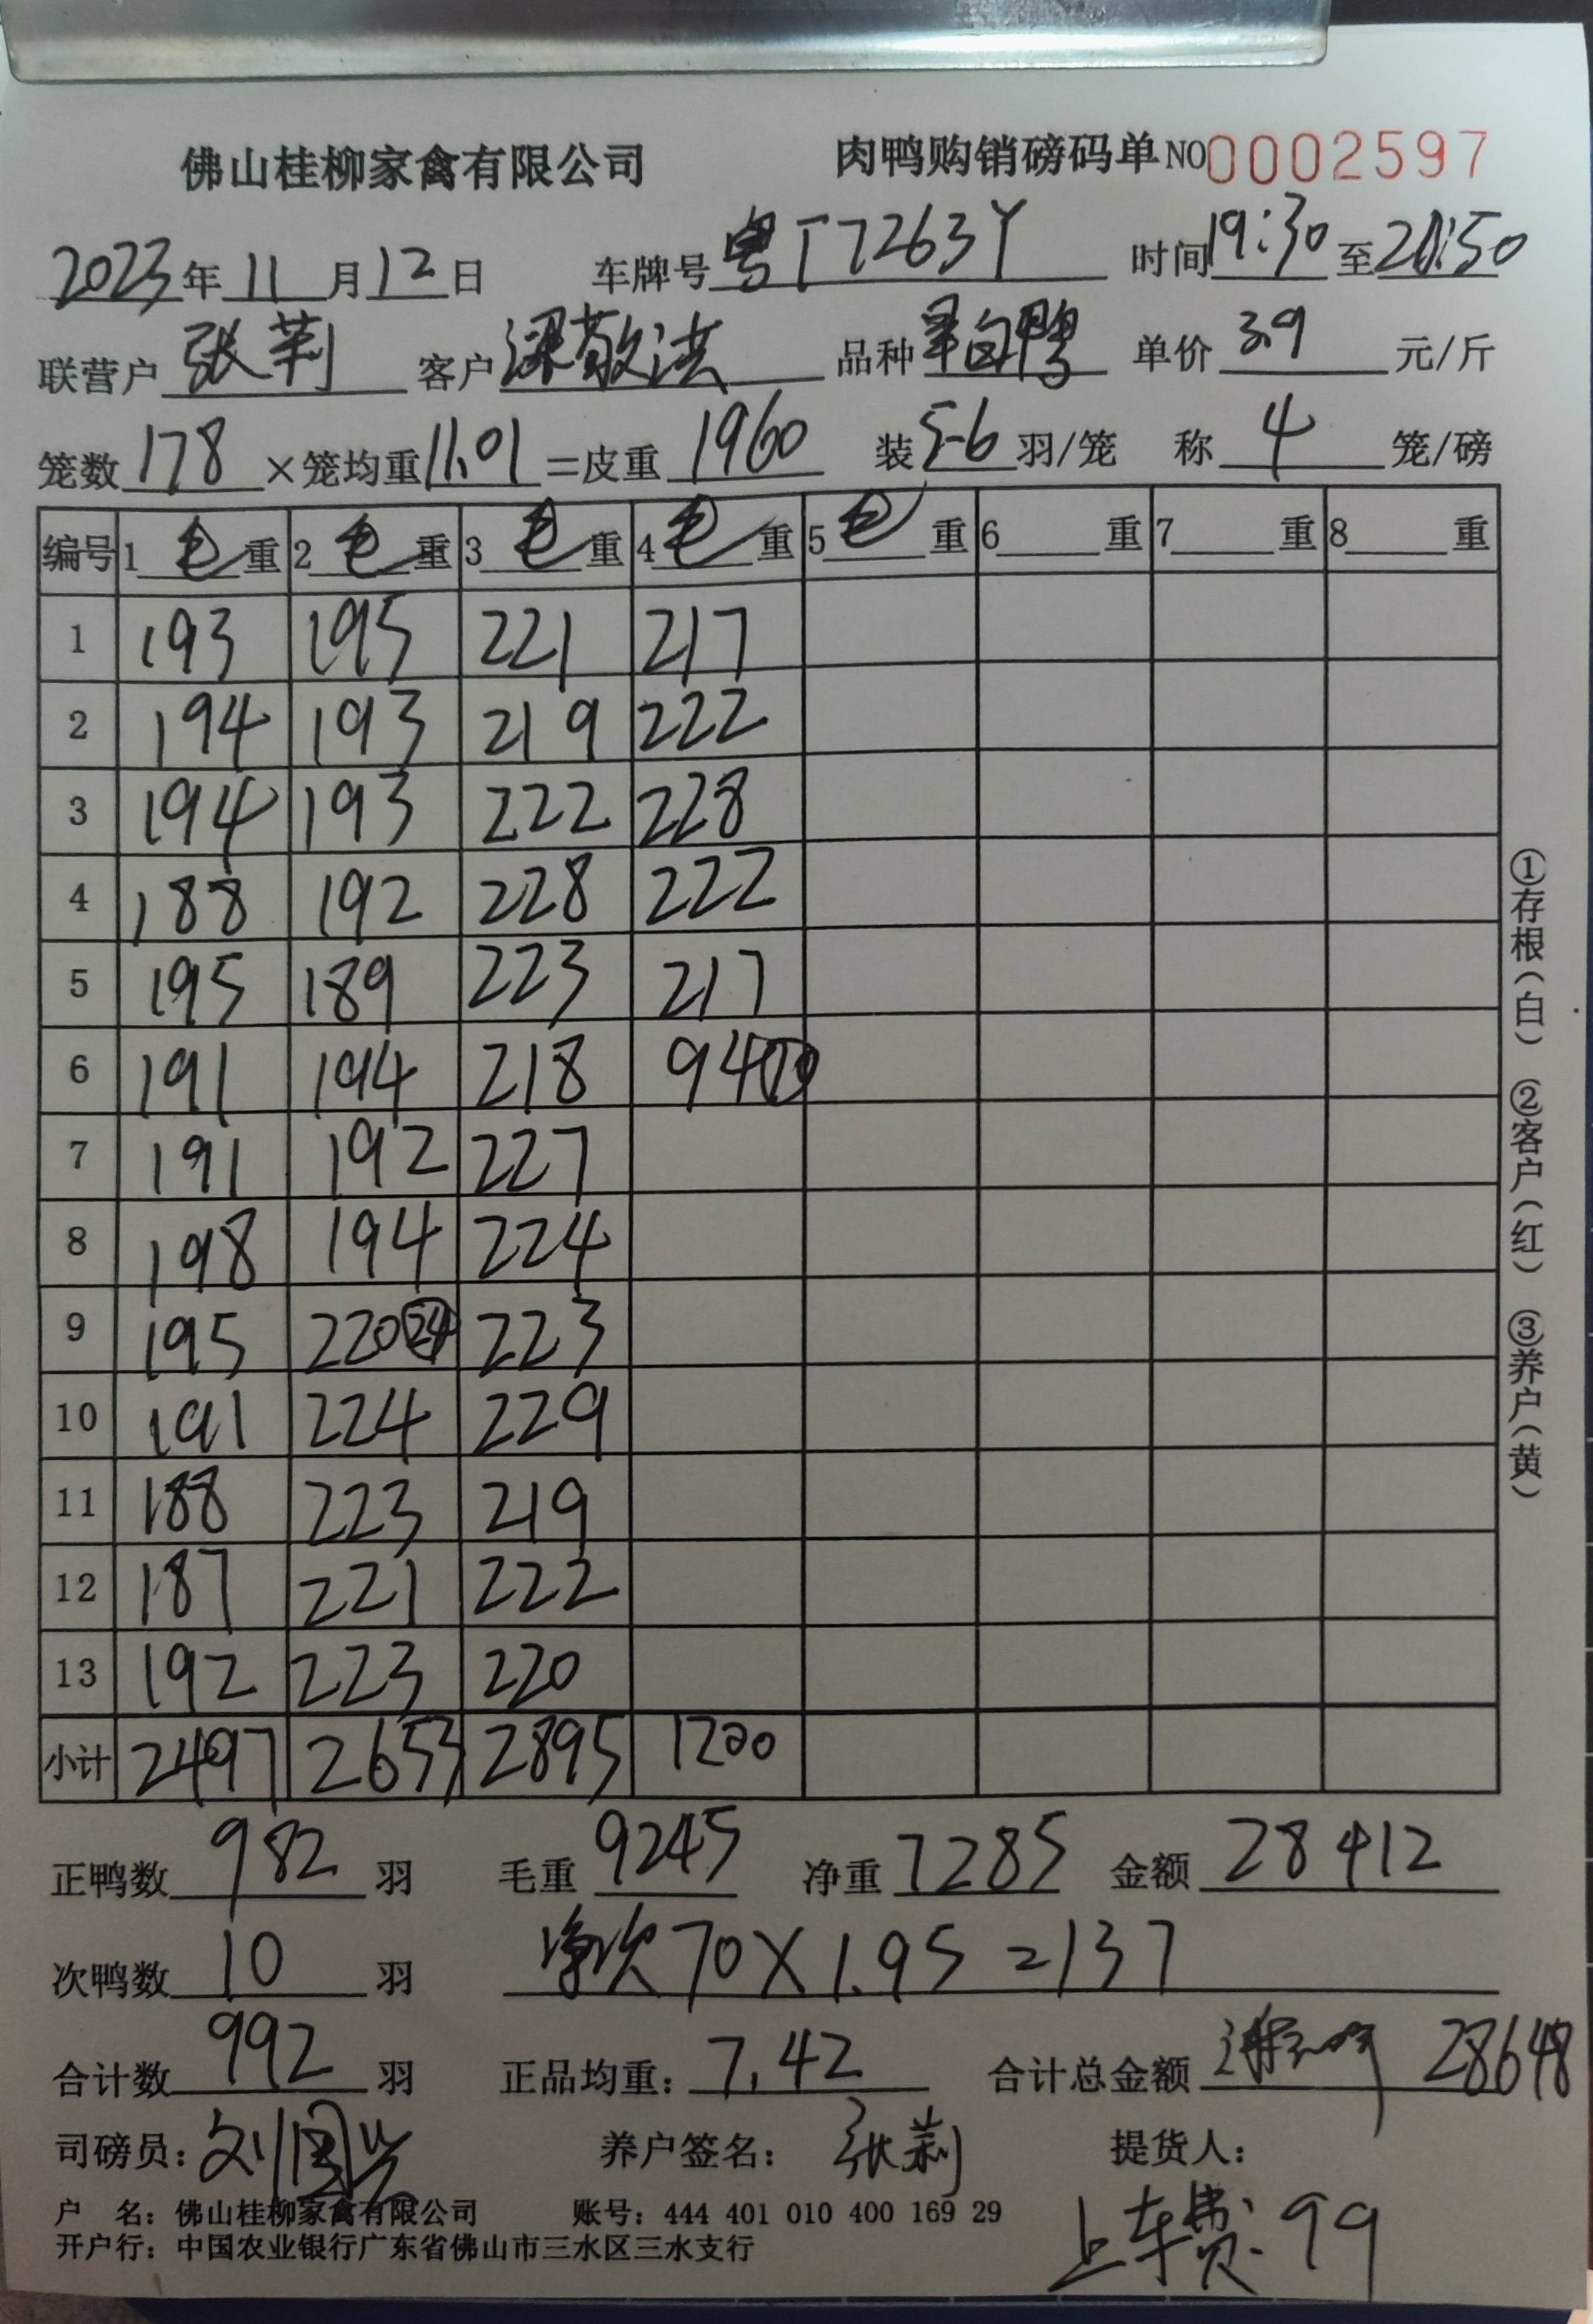 佛山桂柳家禽有限公司 肉鸭购销磅码单 NO0002597
2023年11月12日 车牌号粤T7263Y 时间19:30至20:50
联营户张莉 客户梁敬洪 品种 单价3.9元/斤
笼数178×笼均重11.01=皮重1960 装5-6羽/笼 称4笼/磅
编号 1毛重 2毛重 3毛重 4毛重 5毛重 6重 7重 8重
1 193 195 221 217
2 194 193 219 222
3 194 193 222 228
4 188 192 228 222
5 195 189 223 217
6 191 194 218 94
7 191 192 227
8 198 194 224
9 195 220㉔ 223
10 191 224 229
11 188 223 219
12 187 221 222
13 192 223 220
小计 2497 2653 2895 1200
正鸭数982羽 毛重9245 净重7285 金额28412
次鸭数10羽 净次70×1.95=137
合计数992羽 正品均重:7.42 合计总金额 28648
司磅员:刘国兴 养户签名:张莉 提货人:
户 名:佛山桂柳家禽有限公司 账号:444 401 010 400 169 29
开户行:中国农业银行广东省佛山市三水区三水支行
上车费:99
①存根(白) ②客户(红) ③养户(黄)